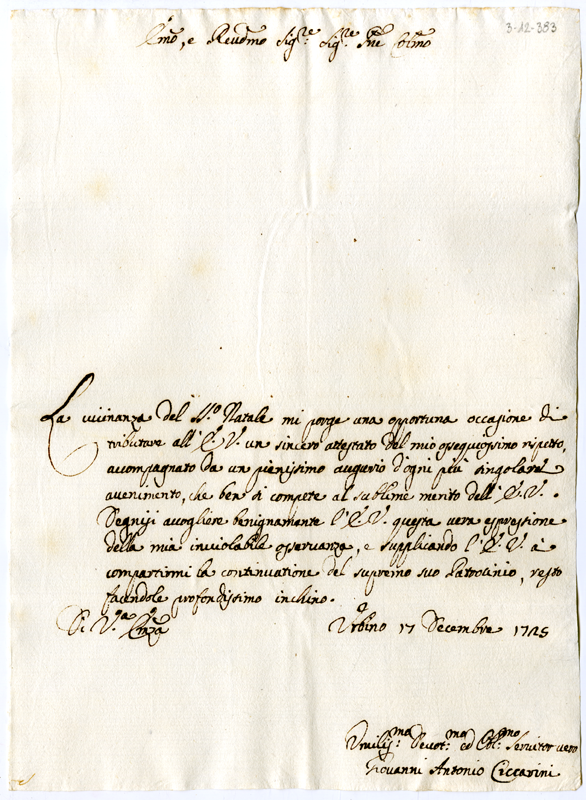 3-12-383
Emo, e Reudmo Sigre: Sigre. Pne Colmo
La vicinanza del SS.º Natale mi porge una opportuna occasione di
tributare all' E. V. un sincero attestato del mio ossequiosissimo rispetto,
accompagnato da un pienissimo augurio d'ogni più singolare
avenimento, che ben si compete al sublime merito dell' E. V.
Degnisi accogliere benignamente l' E. V. questa vera espressione
della mia inviolabile osservanza, e supplicando l' E. V. à
compartirmi la continuatione del supremo suo Patrocinio, resto
facendole profondissimo inchino.
Di V.ra Emza
Urbino 17 Decembre 1725
Vmilis:mo Devot:mo ed Obl:mo Servitor vero
Giovanni Antonio Ciccarini